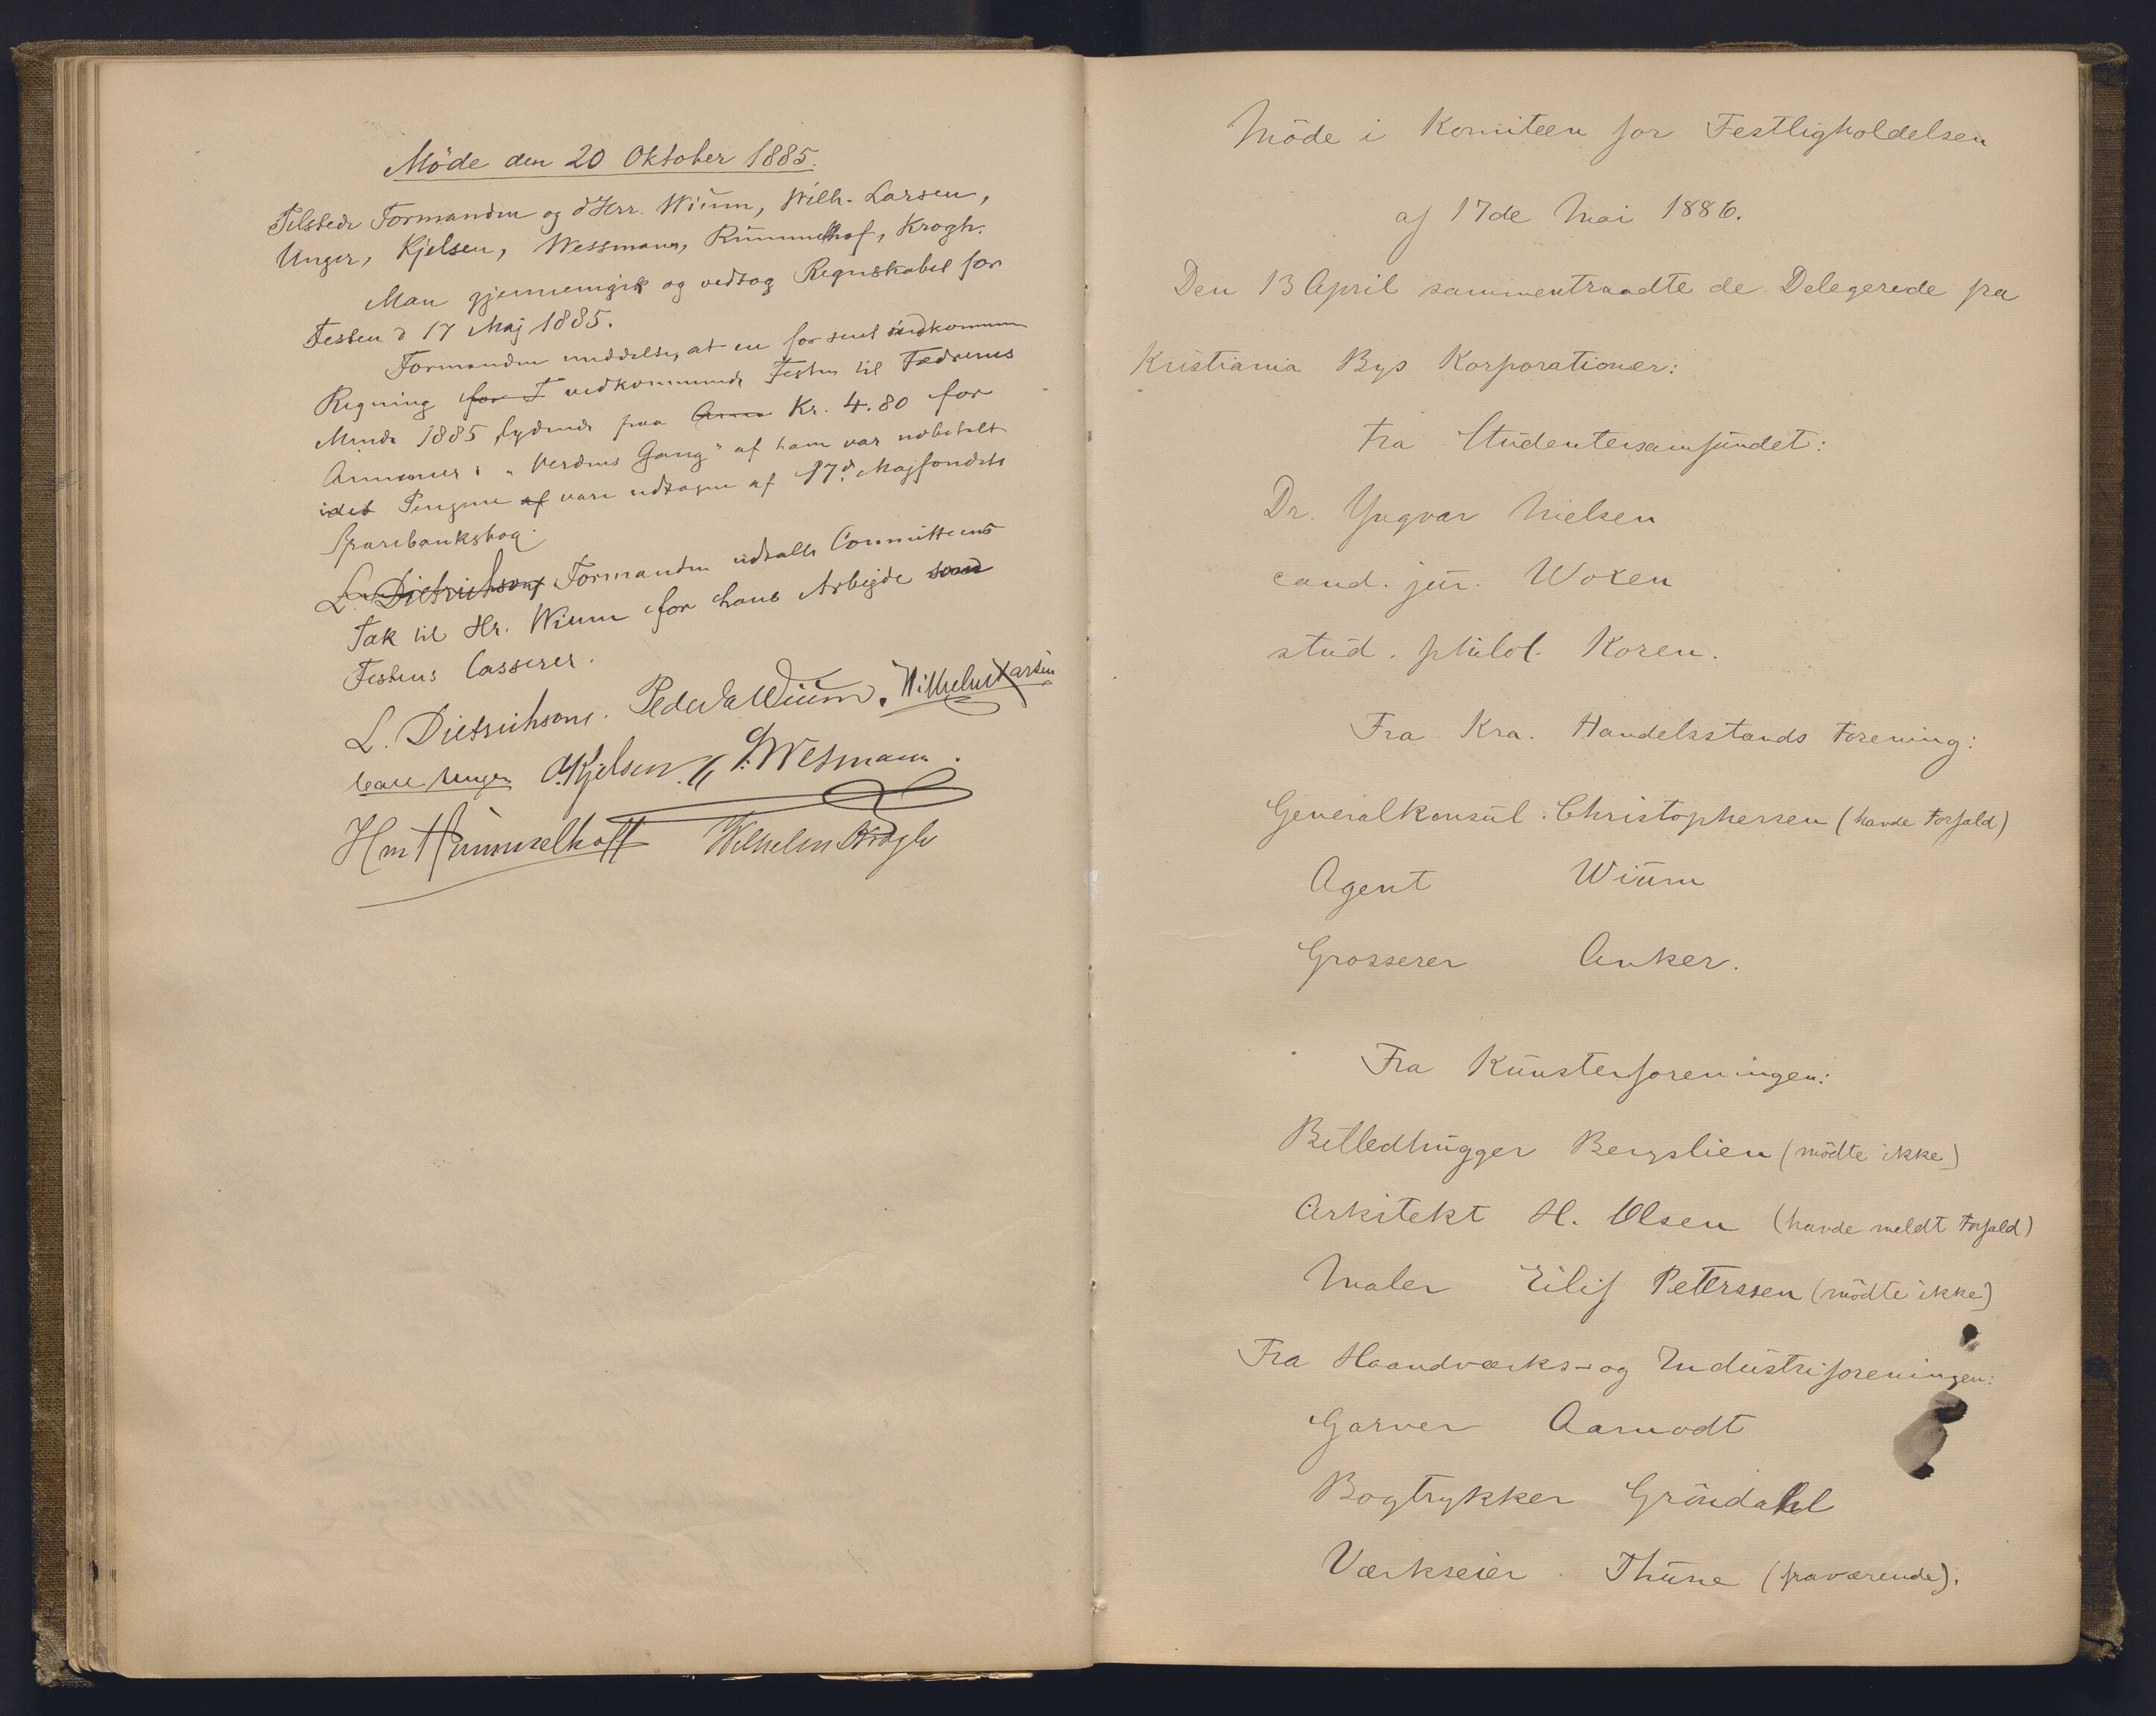 Möde den 20 Oktober 1885.
Tilstede Formanden og d'Hrr. Wiüm, Wilh. Larsen,
Unger, Kjelsen, Wessmann, Rümmelhof, Krogh.
Man gjennemgik og vedtog Regnskabet for
Festen d 17 Maj 1885.
Formanden meddelte, at en for sent indkommen
Regning for F vedkommende Festen til Fædrenes
Minde 1885, lydende paa Anno Kr. 4.80 for
Annoncer i "Verdens Gang" af ham var udbetalt
idet Pengene af vare udtagne af 17de Majfondets
Sparebanksbog.
L. Dietrichson Formanden udtalte Committeens
Tak til Hr. Wiüm for hans Arbejde som
Festens Casserer.
L. Dietrichson. Peder Wiüm. Wilhelm Larsen
Carl Unger A. Kjelsen. Wesmann.
Hm Hümmelhoff Wilhelm Krogh
Möde i Komiteen for Festligholdelsen
af 17de Mai 1886.
Den 13 April sammentraadte de Delegerede fra
Kristiania Bys Korporationer:
Fra Studentersamfündet:
Dr. Yngvar Nielsen
cand. jür. Woxen
stüd. philol. Koren.
Fra Kra. Handelsstands Forening:
Generalkonsül Christophersen (havde Forfald)
Agent Wiüm
Grosserer Anker.
Fra Künsterforeningen:
Billedhügger Bergslien (mödte ikke)
Arkitekt H. Olsen (havde meldt Forfald)
Maler Eilif Peterssen (mödte ikke)
Fra Haandværks- og Indüstriforeningen:
Garver Aamodt
Bogtrykker Gröndahl
Værkseier Thüne (fraværende).